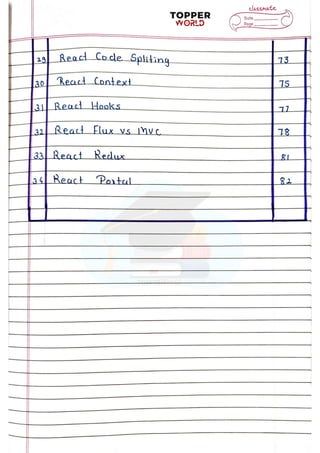 classmate
TOPPER
WORLD
Date
Page
29 React Code Spliting 73
30 React Context 75
31 React Hooks 77
32 React Flux vs MVC 78
33 React Redux 81
34 React Portal 82